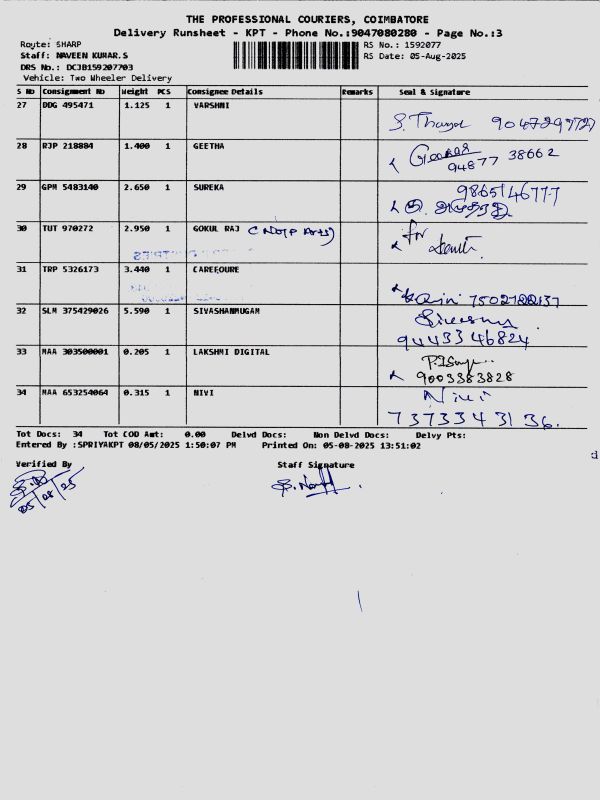 THE PROFESSIONAL COURIERS, COIMBATORE
Delivery Runsheet - KPT - Phone No.:9047080280 - Page No.:3
Route: SHARP
Staff: NAVEEN KUMAR.S
DRS No.: DCJB159207703
Vehicle: Two Wheeler Delivery
RS No.: 1592077
RS Date: 05-Aug-2025
S No Consignment No Weight PCS Consignee Details Remarks Seal & Signature
27 DDG 495471 1.125 1 VARSHNI
9047299727
28 RJP 218884 1.400 1 GEETHA
94877 38662
29 GPM 5483140 2.650 1 SUREKA
9865146777
30 TUT 970272 2.950 1 GOKUL RAJ
for
31 TRP 5326173 3.440 1 CAREFOURE
32 SLM 375429026 5.590 1 SIVASHANMUGAM
94433 46824
33 MAA 303500001 0.205 1 LAKSHMI DIGITAL
9003383828
34 MAA 653254064 0.315 1 NIVI
Nivi
7373343136.
Tot Docs: 34 Tot COD Amt: 0.00 Delvd Docs: Non Delvd Docs: Delvy Pts:
Entered By :SPRIYAKPT 08/05/2025 1:50:07 PM Printed On: 05-08-2025 13:51:02
Verified By Staff Signature
05/08/25